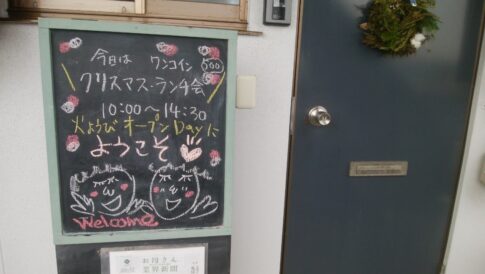 今日は ワンコイン 500
クリスマス・ランチ会
10:00〜14:30
火ようび オープンDayに
ようこそ
Welcome
お母さん
業界新聞